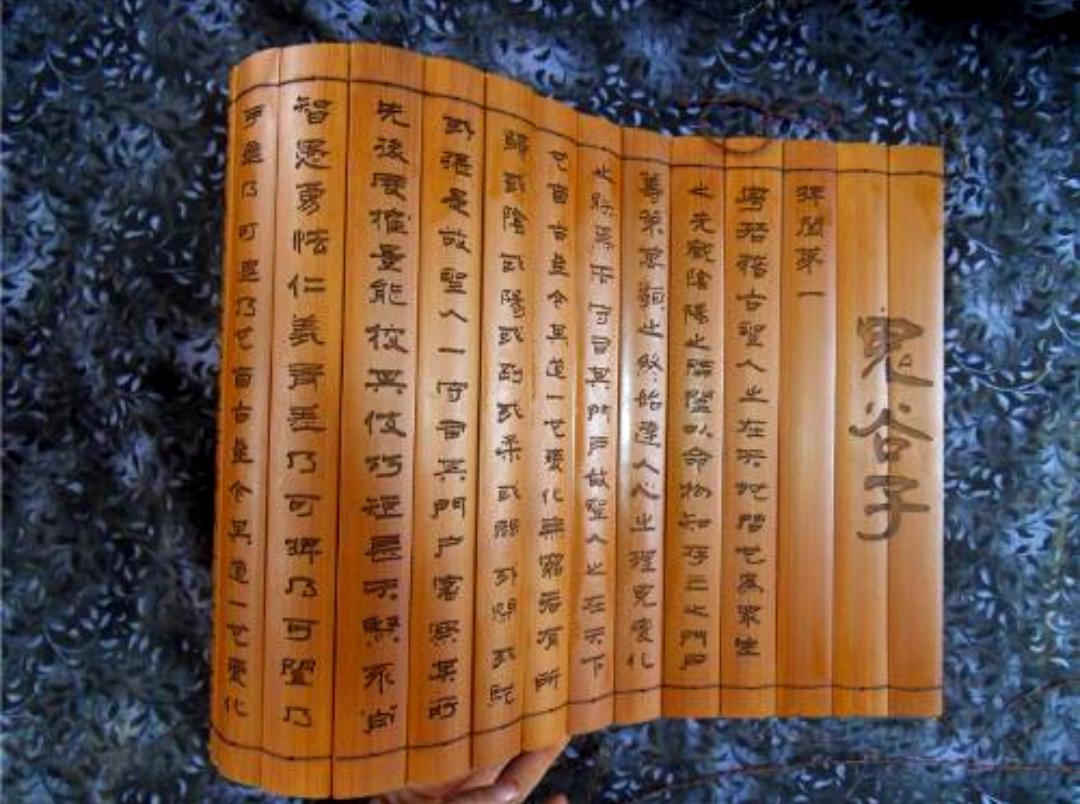 鬼谷子
捭闔第一
粵若稽古聖人之在天地間也為眾生
之先觀陰陽之開闔以命物知存亡之門戶
籌策萬類之終始達人心之理見變化
之朕焉而守司其門戶故聖人之在天下
也自古至今其道一也變化無窮各有所
歸或陰或陽或剛或柔或開或閉或弛
或張是故聖人一守司其門戶審察其所
先後度權量能校其伎巧短長夫賢不肖
智愚勇怯仁義有差乃可捭乃可闔乃
進乃可乃也自古至今其道一也變化